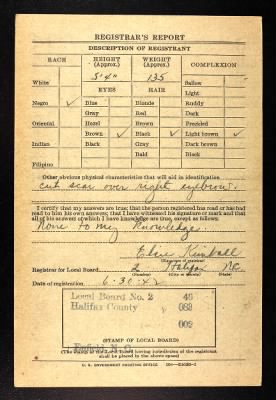 REGISTRAR'S REPORT
DESCRIPTION OF REGISTRANT
RACE HEIGHT (Approx.) WEIGHT (Approx.) COMPLEXION
5'4" 135
White Sallow
EYES HAIR Light
Negro ✓ Blue Blonde Ruddy
Gray Red Dark
Oriental Hazel Brown Freckled
Brown ✓ Black ✓ Light brown ✓
Indian Black Gray Dark brown
Bald Black
Filipino
Other obvious physical characteristics that will aid in identification
cut scar over right eyebrow.
I certify that my answers are true; that the person registered has read or has had
read to him his own answers; that I have witnessed his signature or mark and that
all of his answers of which I have knowledge are true, except as follows:
None to my knowledge.
Elsie Kimball
(Signature of registrar)
Registrar for Local Board 2 Halifax N.C.
(Number) (City or county) (State)
Date of registration 6-30-42
Local Board No. 2 46
Halifax County 083
002
Enfield, N. C.
(STAMP OF LOCAL BOARD)
(The stamp of the Local Board having jurisdiction of the registrant
shall be placed in the above space.)
U. S. GOVERNMENT PRINTING OFFICE